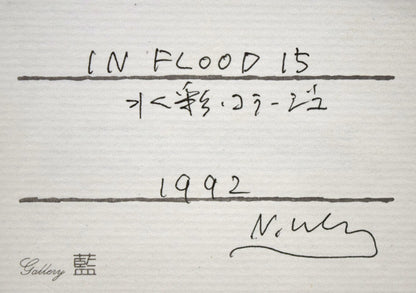 IN FLOOD 15
水彩・コラージュ
1992
Gallery 藍